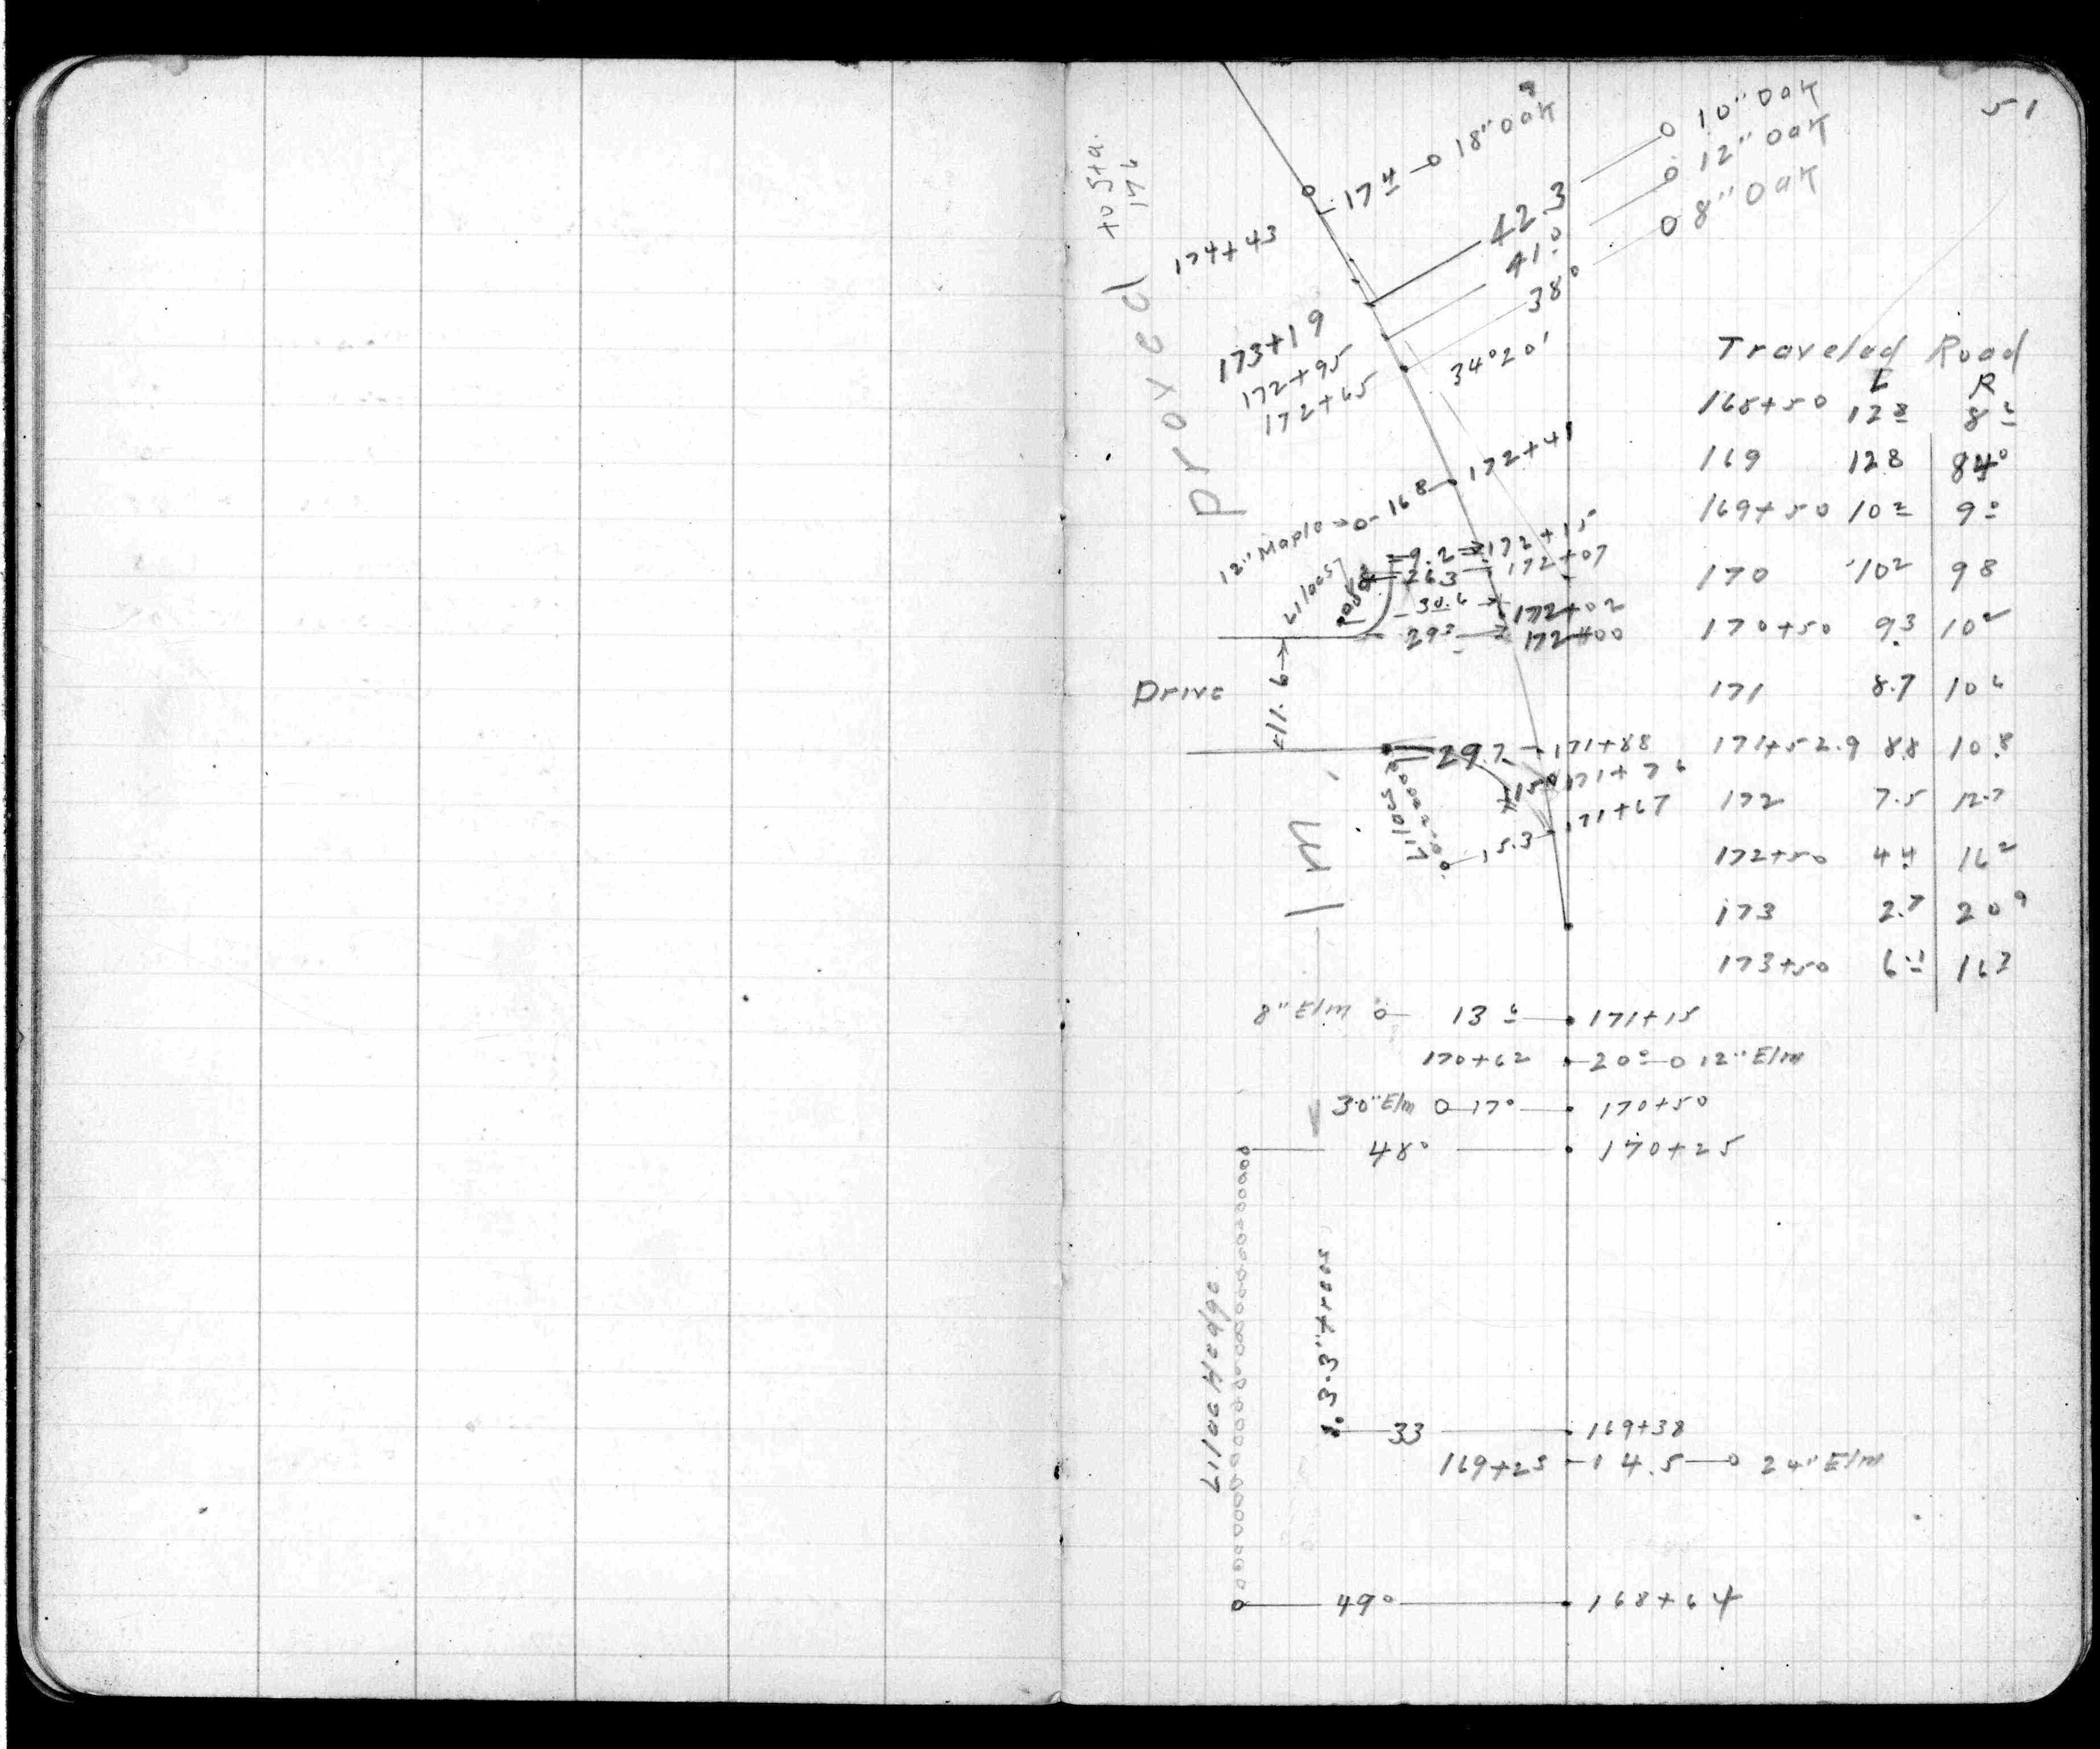 51
10" Oak
18" Oak
12" Oak
8" Oak
to Sta.
176
17 4
42.3
41 0
38 0
174+43
173+19
172+95
172+65
34°20'
Proxed
Traveled Road
L R
168+50 12 8 8 6
169 12 8 8 4 0
169+50 10 2 9 0
170 10 2 9 8
170+50 9.3 10 2
171 8.7 10 6
171+52.9 8.8 10.8
172 7.5 12.7
172+50 4.4 16 2
173 2.7 20 9
173+50 6 1 16 3
12" Maple 16 8 172+41
9.2 172+15
26.3 172+07
Lilacs
30.6 172+02
29 3 172+00
11.6
Drive
29.7 171+88
15 9 171+76
15.3 171+67
Lilacs
8" Elm 13 6 171+15
170+62 20 0 12" Elm
30" Elm 17 0 170+50
48 0 170+25
Lilac Hedge
3-3" trees
33 169+38
169+25 14.5 24" Elm
49 0 168+64